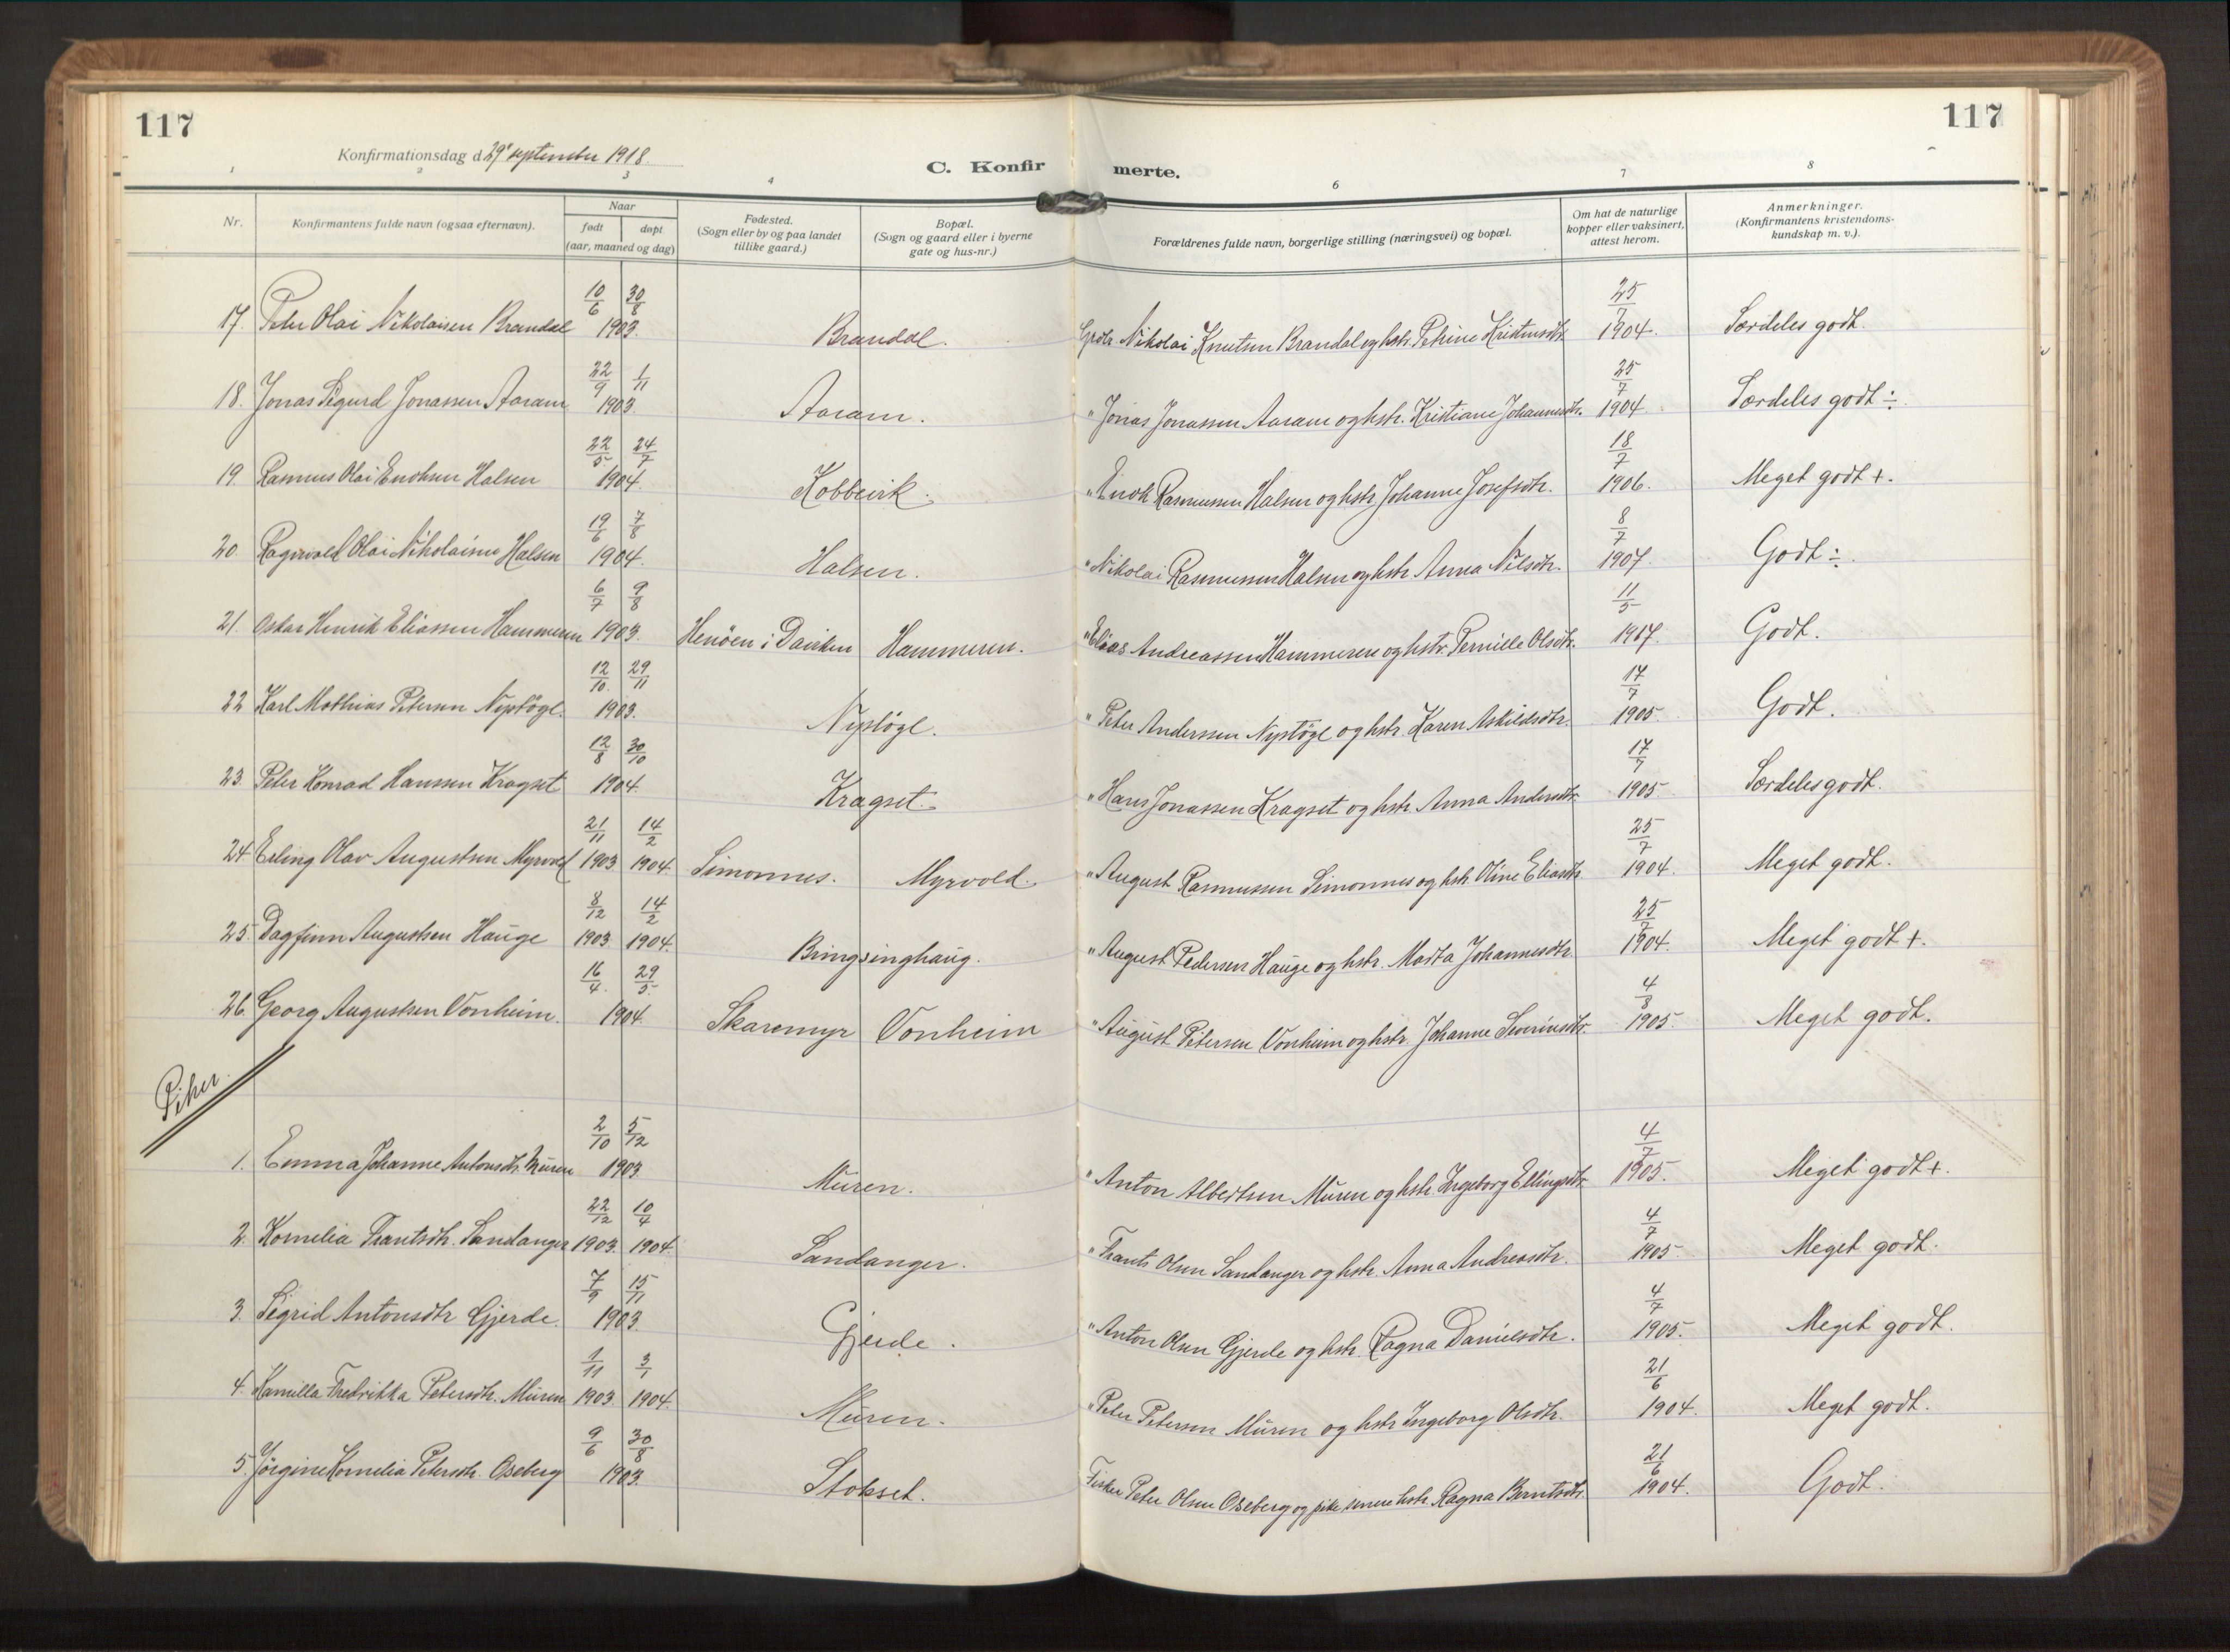 117
117
Konfirmationsdag d 29' september 1918.
C. Konfirmerte.
1 2 3 4 6 7 8
Nr.
Konfirmantens fulde navn (ogsaa efternavn).
Naar
født døpt
(aar, maaned og dag)
Fødested.
(Sogn eller by og paa landet
tillike gaard.)
Bopæl.
(Sogn og gaard eller i byerne
gate og hus-nr.)
Forældrenes fulde navn, borgerlige stilling (næringsvei) og bopæl.
Om hat de naturlige
kopper eller vaksinert,
attest herom.
Anmerkninger.
(Konfirmantens kristendoms-
kundskap m. v.).
17. Peter Olai Nikolaisen Brandal 10/6 30/8 1903. Brandal. Gpdr. Nikolai Knutsen Brandal og hstr. Petrine Kristensdtr. 25/7 1904. Særdeles godt.
18. Jonas Sigurd Jonassen Aaram 22/9 1/11 1903. Aaram. " Jonas Jonassen Aaram og hstr. Kristiane Johannesdtr. 25/7 1904 Særdeles godt ÷.
19. Rasmus Olai Enoksen Halsen 22/5 24/7 1904. Kobbevik. " Enok Rasmussen Halsen og hstr. Johanne Josefsdtr. 18/7 1906. Meget godt +.
20 Ragnvald Olai Nikolaisen Halsen 19/6 7/8 1904. Halsen. " Nikolai Rasmussen Halsen og hstr Anna Nilsdtr. 8/7 1907. Godt ÷.
21. Oskar Henrik Eliassen Hammeren 6/7 9/8 1903. Henøen i Daviken Hammeren. " Elias Andreassen Hammeren og hstr. Pernille Olsdtr. 11/5 1917. Godt.
22 Karl Mathias Petersen Nyptøgl. 12/10. 29/11 1903. Nyptøgl. " Peter Anderssen Nyptøgl og hstr. Karen Askildsdtr. 17/7 1905. Godt.
23. Peter Konrad Hanssen Kragset 12/8 30/10 1904. Kragset. " Hans Jonassen Kragset og hstr. Anna Andersdtr. 17/7 1905. Særdeles godt.
24 Erling Olav Augustsen Myrvold 21/11 1903 14/2 1904. Simonnes. Myrvold. " August Rasmussen Simonnes og hstr. Oline Eliasdtr. 25/7 1904. Meget godt.
25. Dagfinn Augustsen Hauge 8/12 1903 14/2 1904. Bringsinghaug. " August Pedersen Hauge og hstr. Marta Johannesdtr. 25/7 1904. Meget godt +.
26. Georg Augustsen Vonheim. 16/4. 29/5. 1904. Skaremyr Vonheim " August Petersen Vonheim og hstr. Johanne Severinsdtr. 4/8 1905. Meget godt.
Piker.
1. Emma Johanne Antonsdtr. Muren 2/10 5/12 1903. Muren. " Anton Albertsen Muren og hstr. Ingeborg Ellingsdtr. 4/7 1905. Meget godt +.
2. Kornelia Frantsdtr. Sandanger 22/12 1903. 10/4 1904. Sandanger. " Frants Olsen Sandanger og hstr. Anna Andreasdtr. 4/7 1905. Meget godt.
3. Sigrid Antonsdtr Gjerde. 7/9 15/11 1903. Gjerde. " Anton Olsen Gjerde og hstr. Ragna Danielsdtr. 4/7 1905. Meget godt.
4. Kamilla Fredrikka Petersdtr. Muren 1/11 1903. 3/1 1904. Muren. " Peter Petersen Muren og hstr Ingeborg Olsdtr. 21/6 1904. Meget godt.
5. Jørgine Kornelia Petersdtr. Oseberg 9/6 30/8 1903. Stokset. Fisker Peter Olsen Oseberg og pike senere hstr. Ragna Berntsdtr. 21/6 1904. Godt.